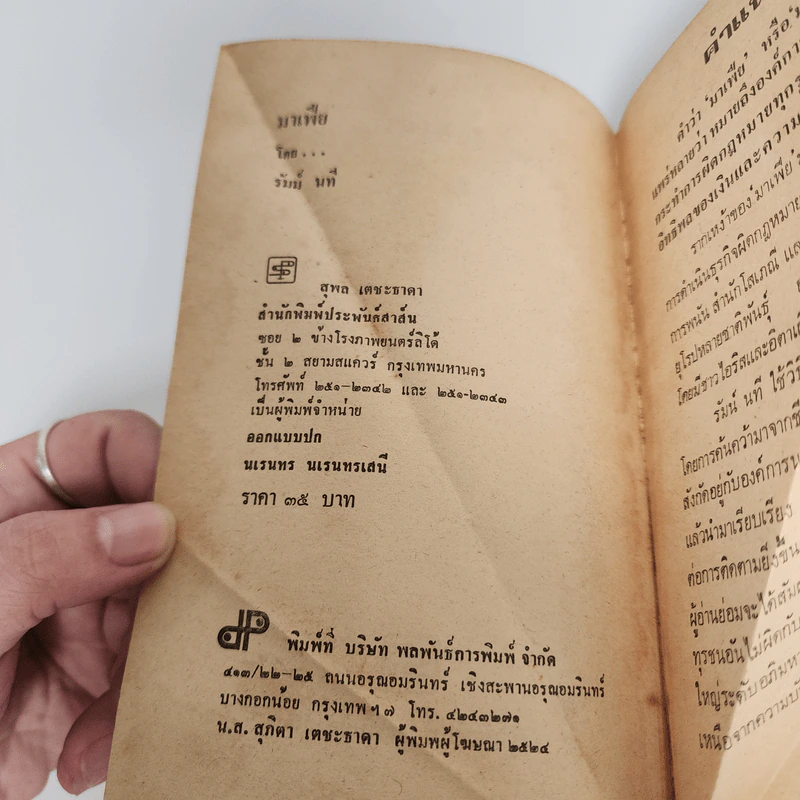 มาเฟีย
โดย...
รัมม์ นที
สุพล เตชะธาดา
สำนักพิมพ์ประพันธ์สาส์น
ซอย ๒ ข้างโรงภาพยนตร์ลิโด้
ชั้น ๒ สยามสแควร์ กรุงเทพมหานคร
โทรศัพท์ ๒๕๑-๒๓๔๒ และ ๒๕๑-๒๓๔๓
เป็นผู้พิมพ์จำหน่าย
ออกแบบปก
นเรนทร นเรนทรเสนี
ราคา ๓๕ บาท
พิมพ์ที่ บริษัท พลพันธ์การพิมพ์ จำกัด
๔๑๓/๒๒-๒๕ ถนนอรุณอมรินทร์ เชิงสะพานอรุณอมรินทร์
บางกอกน้อย กรุงเทพฯ ๗ โทร. ๔๒๔๓๒๗๑
น.ส. สุภิตา เตชะธาดา ผู้พิมพผู้โฆษณา ๒๕๒๔
คำว่า 'มาเฟีย' หรือ
แพร่หลายว่า หมายถึงองค์กา
กระทำการผิดกฎหมายทุก
อิทธิพลของเงินและความ
รากเหง้าของ 'มาเฟีย'
การดำเนินธุรกิจผิดกฎหมาย
การพนัน สำนักโสเภณี แล
ยุโรปหลายชาติพันธุ์
โดยมีชาวไอริสและอิตาเลี
รัมน์ นที ใช้วิธี
โดยการค้นคว้ามาจากชี
สังกัดอยู่กับองค์การน
แล้วนำมาเรียบเรียง
ต่อการติดตามยิ่งขึ้น
ผู้อ่านย่อมจะได้สัม
ทุรชนอันไม่ผิดกับ
ใหญ่ระดับอภิมห
เหนือจากความบั